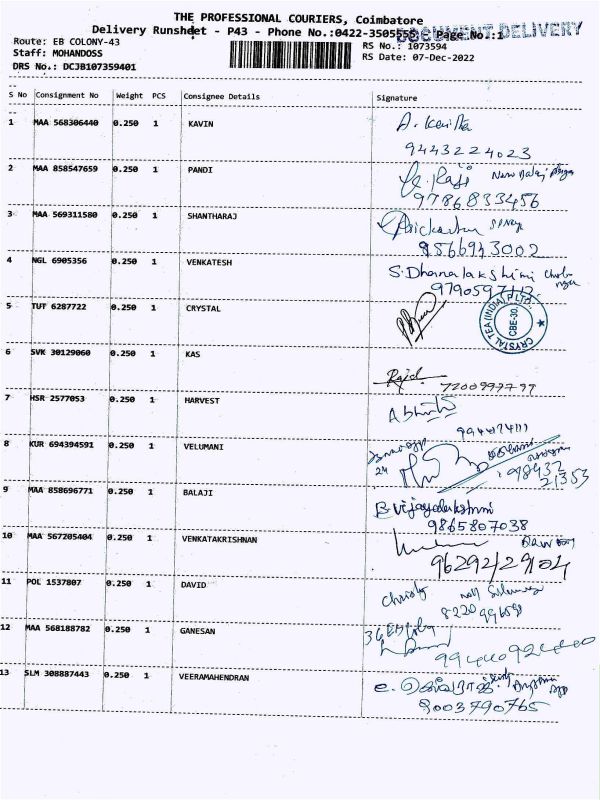 THE PROFESSIONAL COURIERS, Coimbatore
Delivery Runsheet - P43 - Phone No.:0422-3505555 Page No.:1
DOCUMENT DELIVERY
Route: EB COLONY-43
RS No.: 1073594
Staff: MOHANDOSS
RS Date: 07-Dec-2022
DRS No.: DCJB107359401
S No Consignment No Weight PCS Consignee Details Signature
1 MAA 568306440 0.250 1 KAVIN
9443224023
2 MAA 858547659 0.250 1 PANDI
9786833456
3 MAA 569311580 0.250 1 SHANTHARAJ
8566943002
4 NGL 6905356 0.250 1 VENKATESH S.Dhanalakshimi
9790597112
5 TUT 6287722 0.250 1 CRYSTAL
CRYSTAL TEA (INDIA) P LTD.
CBE-30.
6 SVK 30129060 0.250 1 KAS
7 HSR 2577053 0.250 1 HARVEST
8 KUR 694394591 0.250 1 VELUMANI
24
98432
21353
9 MAA 858696771 0.250 1 BALAJI B.Vijayalakshmi
9865807038
10 MAA 567205404 0.250 1 VENKATAKRISHNAN
9629429104
11 POL 1537807 0.250 1 DAVID Christy
12 MAA 568188782 0.250 1 GANESAN
13 SLM 308887443 0.250 1 VEERAMAHENDRAN
9003790765